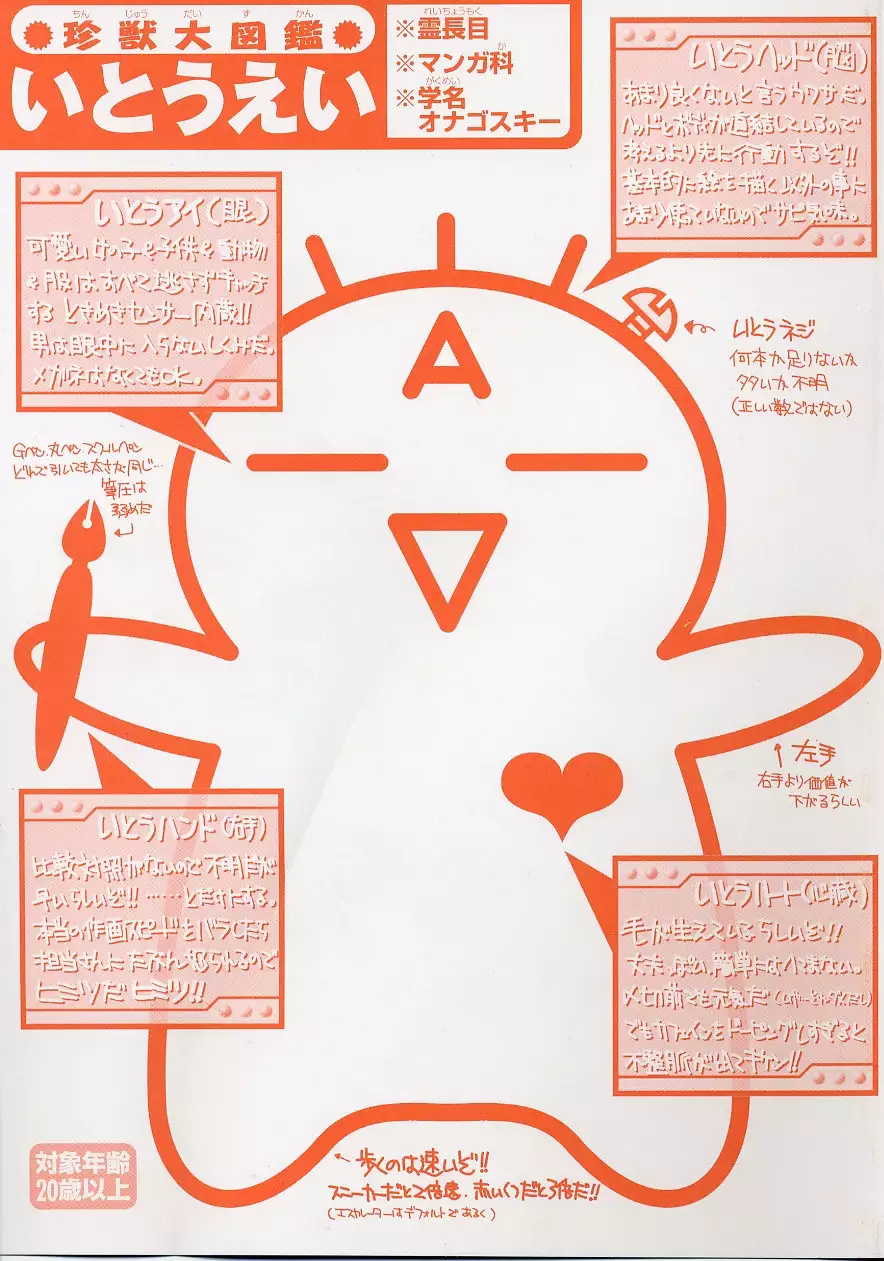 ちん じゅう だい ず かん
珍獣大図鑑
いとうえい
れいちょうもく
※霊長目
か
※マンガ科
がくめい
※学名
オナゴスキー
いとうヘッド(脳)
あまり良くないと言うウワサだ。
ヘッドとボディが直結しているので
考えるより先に行動するぞ!!
基本的に絵を描く以外の事に
あまり使っていないのでサビ気味。
いとうアイ(眼)
可愛い女っ子や子供や動物
や服は、すべて逃さずキャッチ
する ときめきセンサー内蔵!!
男は眼中に入らないしくみだ。
メガネはなくてもOK。
A
いとうネジ
何本か足りないか
多いか不明
(正しい数ではない)
Gペン、丸ペン、スクールペン
どれで引いても太さが同じ…
筆圧は
弱めだ
左手
右手より価値が
下がるらしい
いとうハンド(右手)
比較対照がないので不明だが
早いらしいぞ!! ……とだけにする。
本当の作画スピードをバラしたら
担当さんにたぶん怒られるので
ヒミツだヒミツ!!
いとうハート(心臓)
毛が生えているらしいぞ!!
簡単にはへこまない。
〆切前でも元気だ
でもカフェインをドーピングしすぎると
不整脈が出てキケン!!
歩くのは速いぞ!!
スニーカーだと2倍速、赤いくつだと3倍だ!!
(エスカレーターはデフォルトであるく)
対象年齢
20歳以上